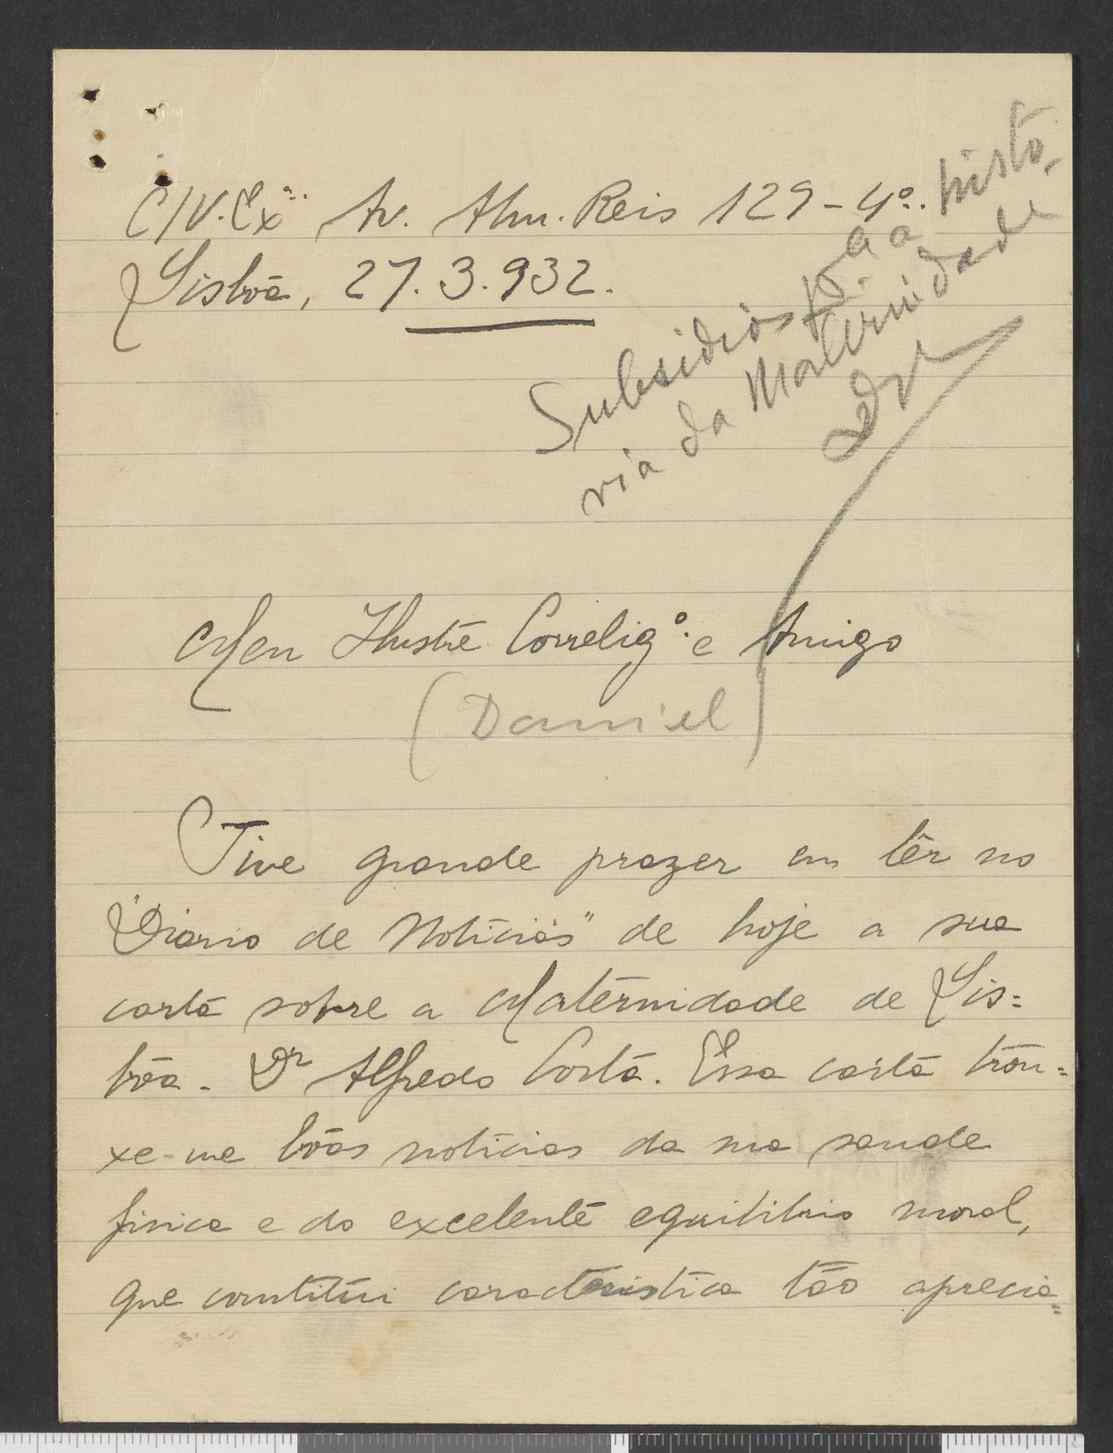 C/V. Exª Av. Alm. Reis 129-4º.
Lisbôa, 27.3.932.
Subsidios pª a histó-
ria da Maternidade
Meu Ilustre Correligº. e Amigo
(Daniel)
Tive grande prazer em lêr no
"Diario de Noticias" de hoje a sua
carta sobre a Maternidade de Lis=
bôa - Dr Alfredo Costa. Essa carta trou=
xe-me bôas noticias da sua saude
fisica e do excelente equilibrio moral,
que constitúi caracteristica tão aprecia=